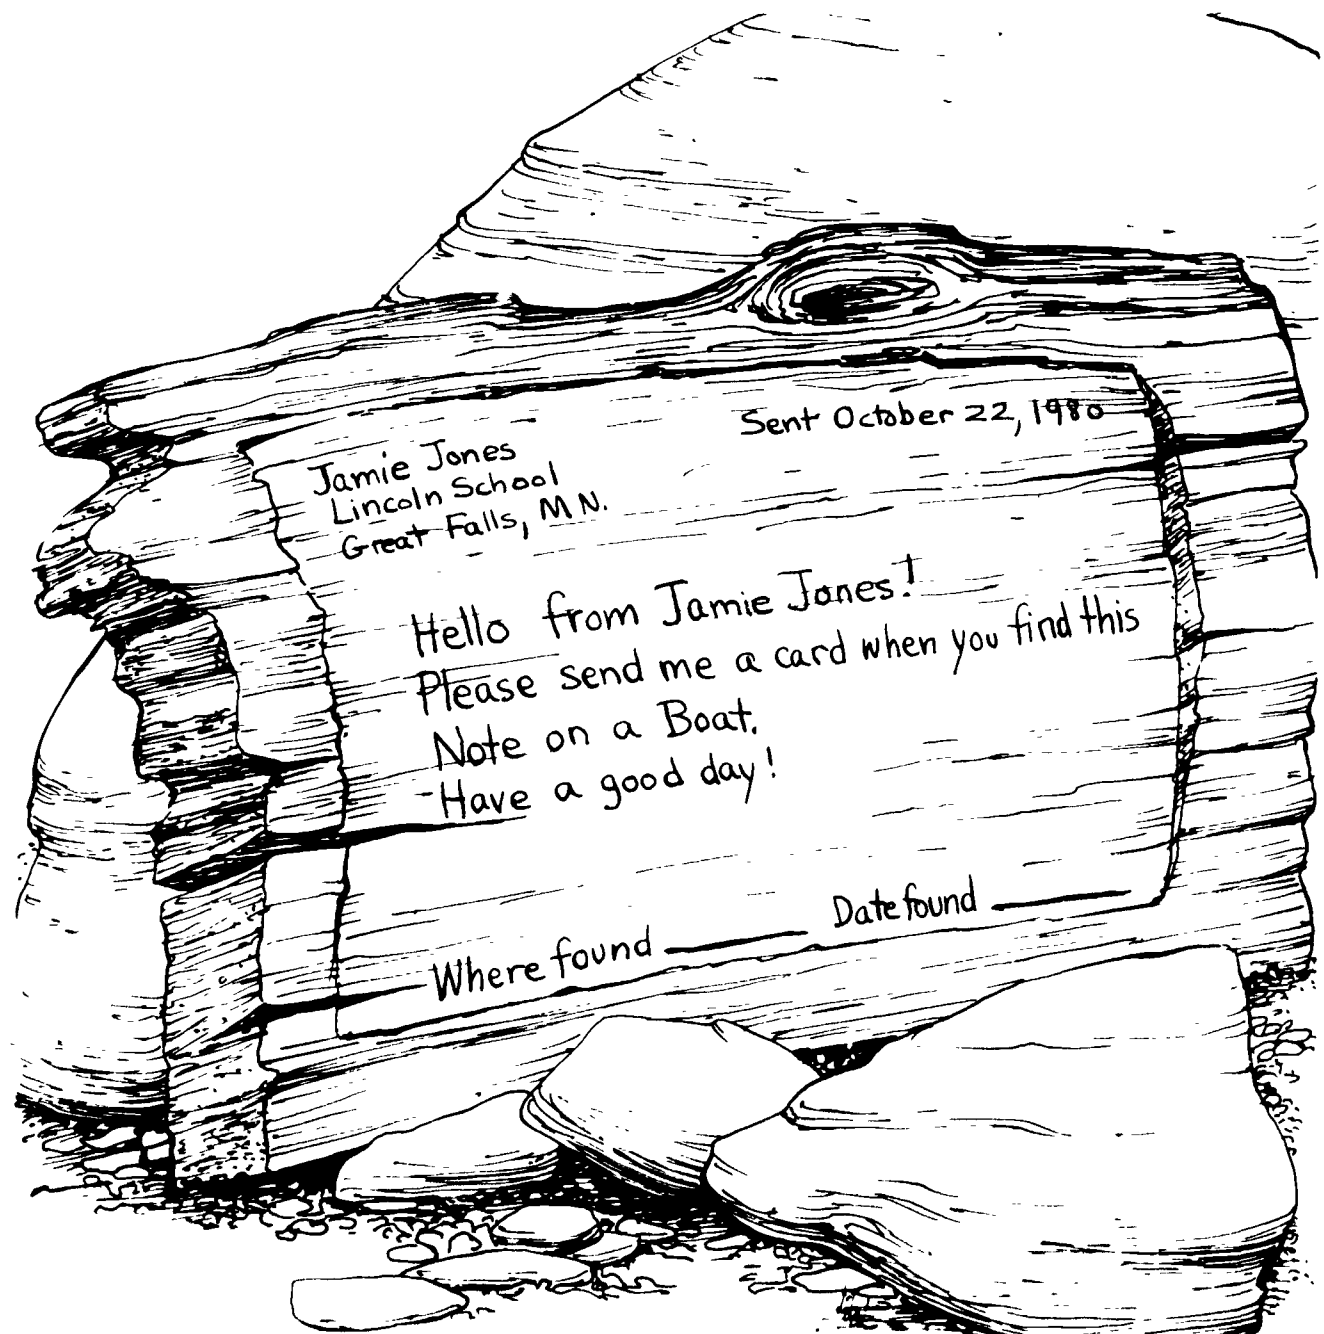 Sent October 22, 1980
Jamie Jones
Lincoln School
Great Falls, MN.
Hello from Jamie Jones!
Please send me a card when you find this
Note on a Boat.
Have a good day!
Where found ______ Date found ______